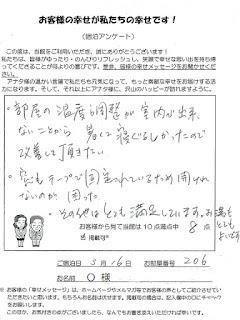 お客様の幸せが私たちの幸せです！
（宿泊アンケート）
この度は、当館をご利用いただき、誠にありがとうございます！
私たちは、皆様がゆったり・のんびりリフレッシュし、笑顔で幸せな思い出を持ち帰
ってくださることが何よりの喜びです。是非、皆様の幸せメッセージをお聞かせくださ
い。
アナタ様の温かい言葉で私たちも元気になって、もっと素敵な幸せをお届けする活
力になります。そして、それ以上にアナタ様に、沢山のハッピーが訪れますように。
・部屋の温度調整が室内で出来
ないことから暑くて寝ぐるしかったので
改善して頂きたい
・窓もテープで固定されているため開けれ
ないのが困った
・その他はとても満足しています。お湯も
とても
よいです
お客様から見て当館は１０点満点中 8 点
掲載可
ご宿泊日 5月16日 お部屋番号 206
お名前 O様
※お客様の「幸せメッセージ」は、ホームページやメルマガ等でお客様の声としてご紹介させてい
ただきたいと思います。もちろんお名前は伏せます。掲載可の場合は、記入欄中の□にチャック
をお願いします。
このほか、お気付きの点がございましたら、なんでもお書き添えいただければ幸いです。